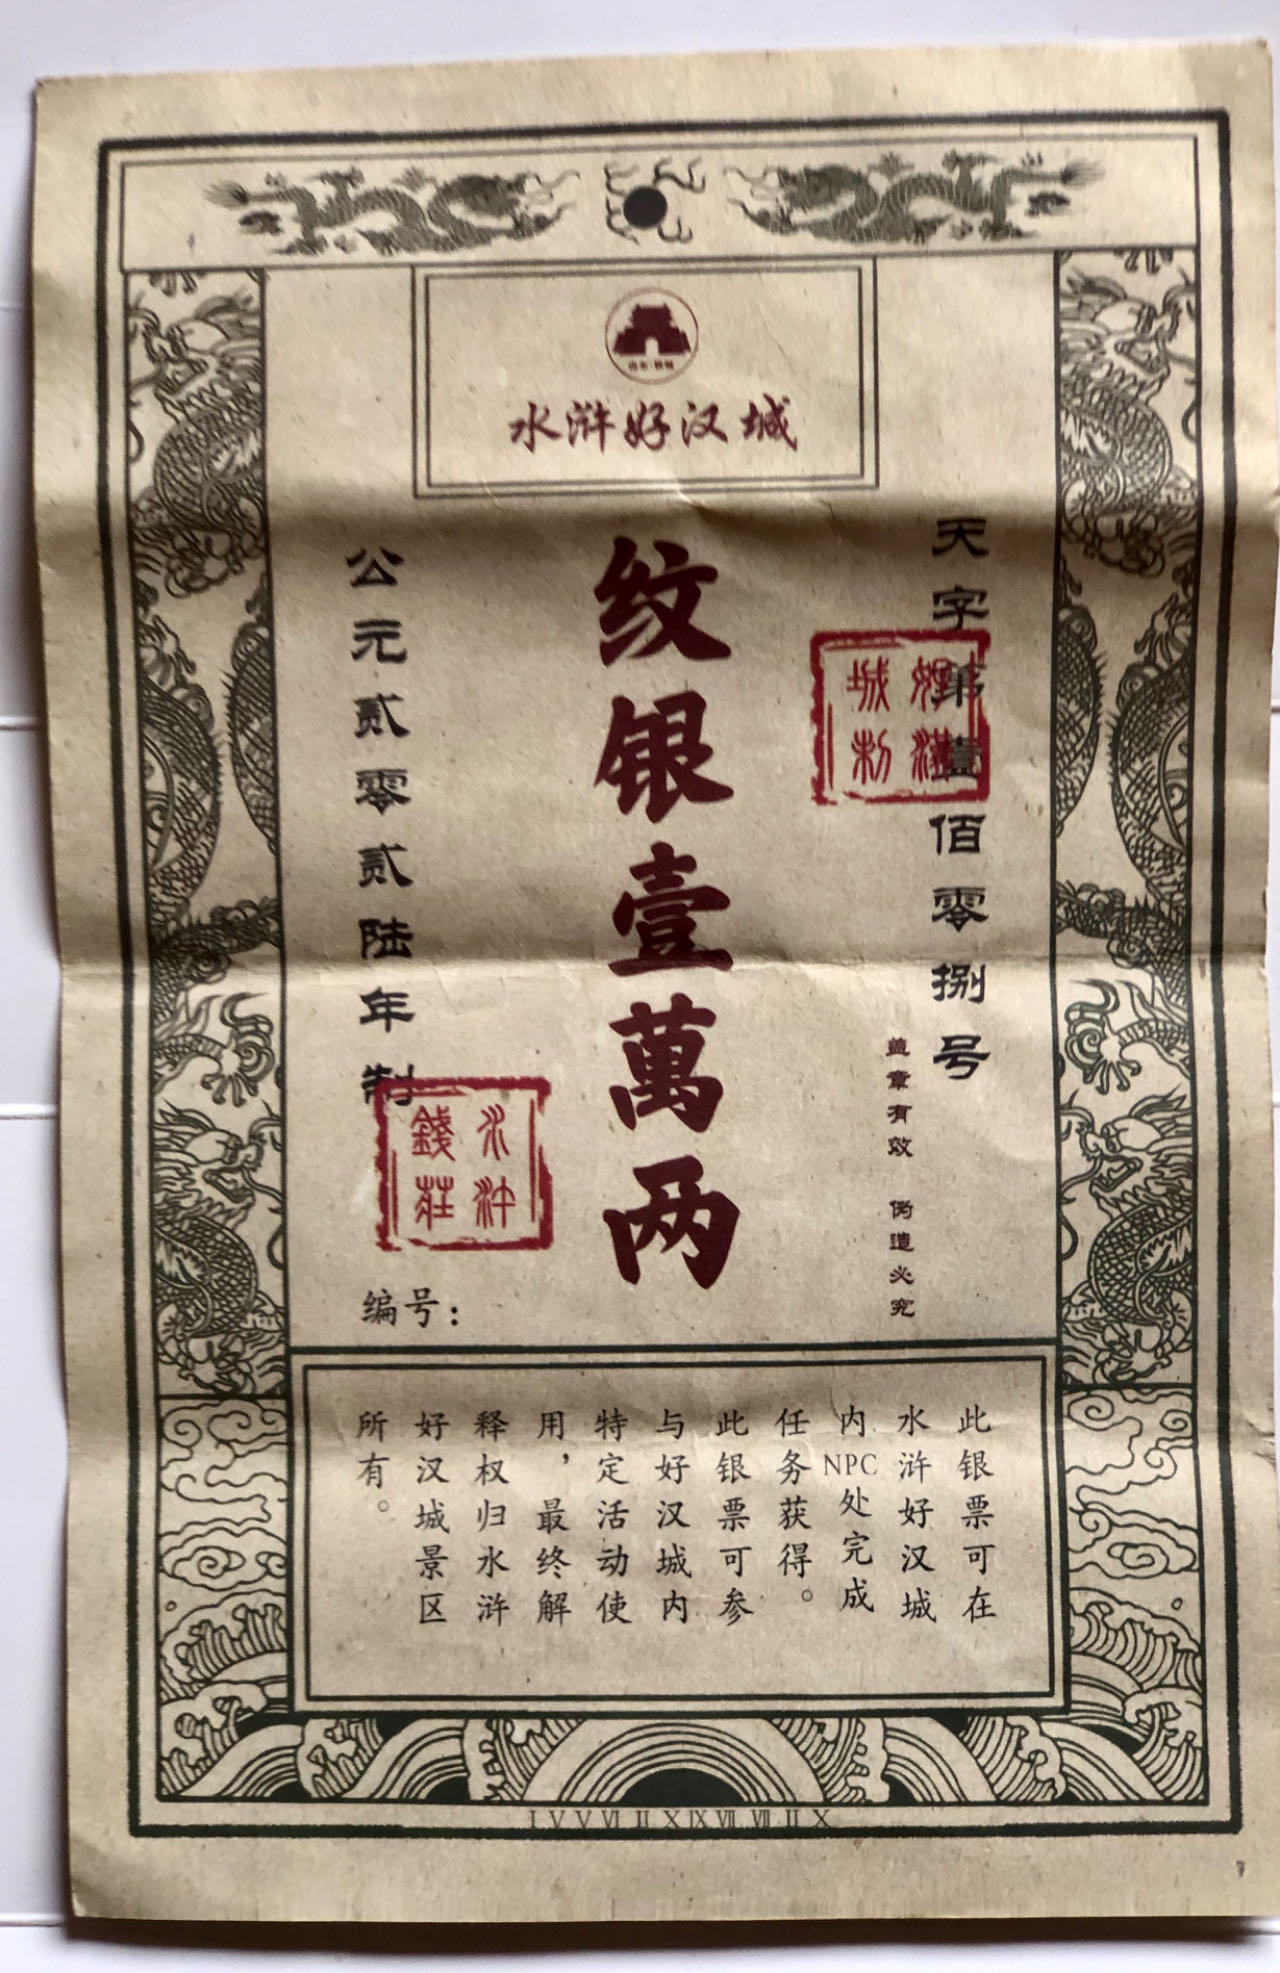 水浒好汉城
天字第壹佰零捌号
盖章有效 伪造必究
纹银壹萬两
公元贰零贰陆年制
水浒
錢莊
编号：
此银票可在
水浒好汉城
内NPC处完成
任务获得。
此银票可参
与好汉城内
特定活动使
用，最终解
释权归水浒
好汉城景区
所有。
I V V VI II X IX VII VII II X